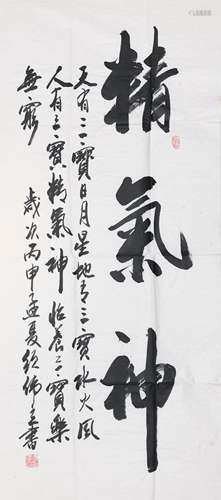 精氣神
天有三寶日月星地有三寶水火風
人有三寶精氣神怡養三寶樂
無窮 歲次丙申孟夏
書